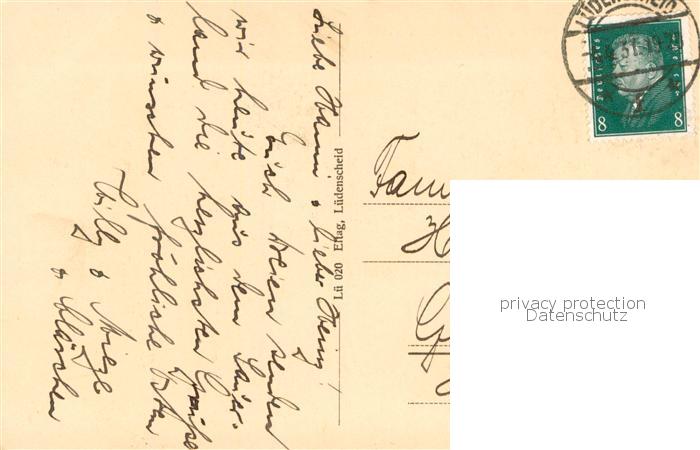 Liebe Hanni & lieber Heinz!
Euch Dreien senden
wir heute aus dem Sauer-
land die herzlichsten Grüße
& wünschen fröhliche Ostern
Willy & Miezel
& Clärchen
Lü 020 Eftag, Lüdenscheid
Fam
H
G
LÜDENSCHEID
31.10
Deutsches
8 8
privacy protection
Datenschutz